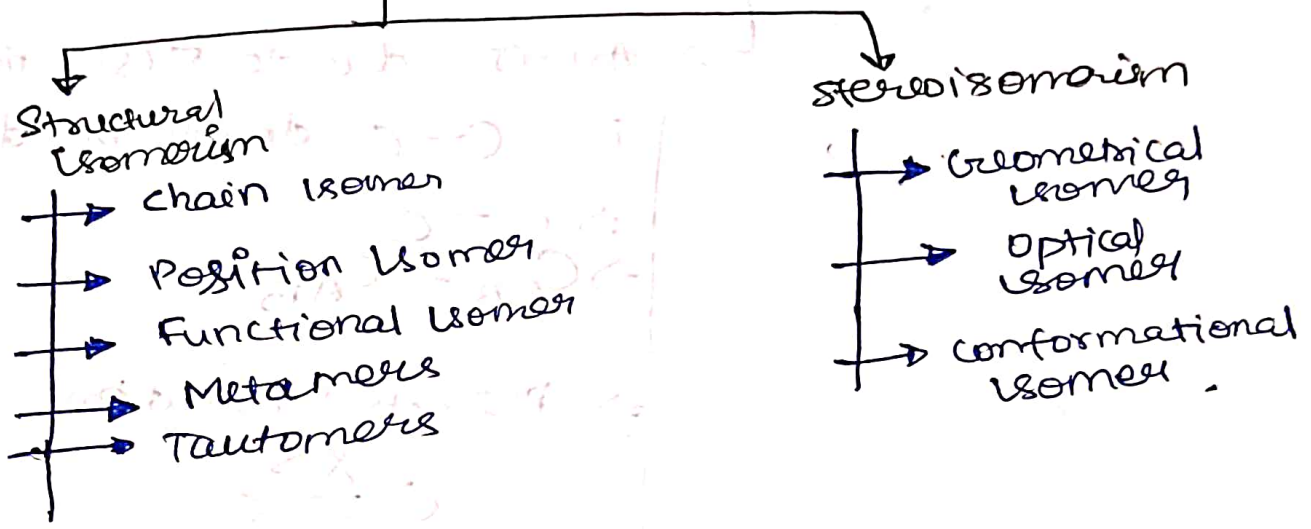 Structural
isomerism
chain isomer
Position isomer
Functional isomer
Metamers
Tautomers
stereoisomerism
Geometrical
isomer
optical
isomer
conformational
isomer.